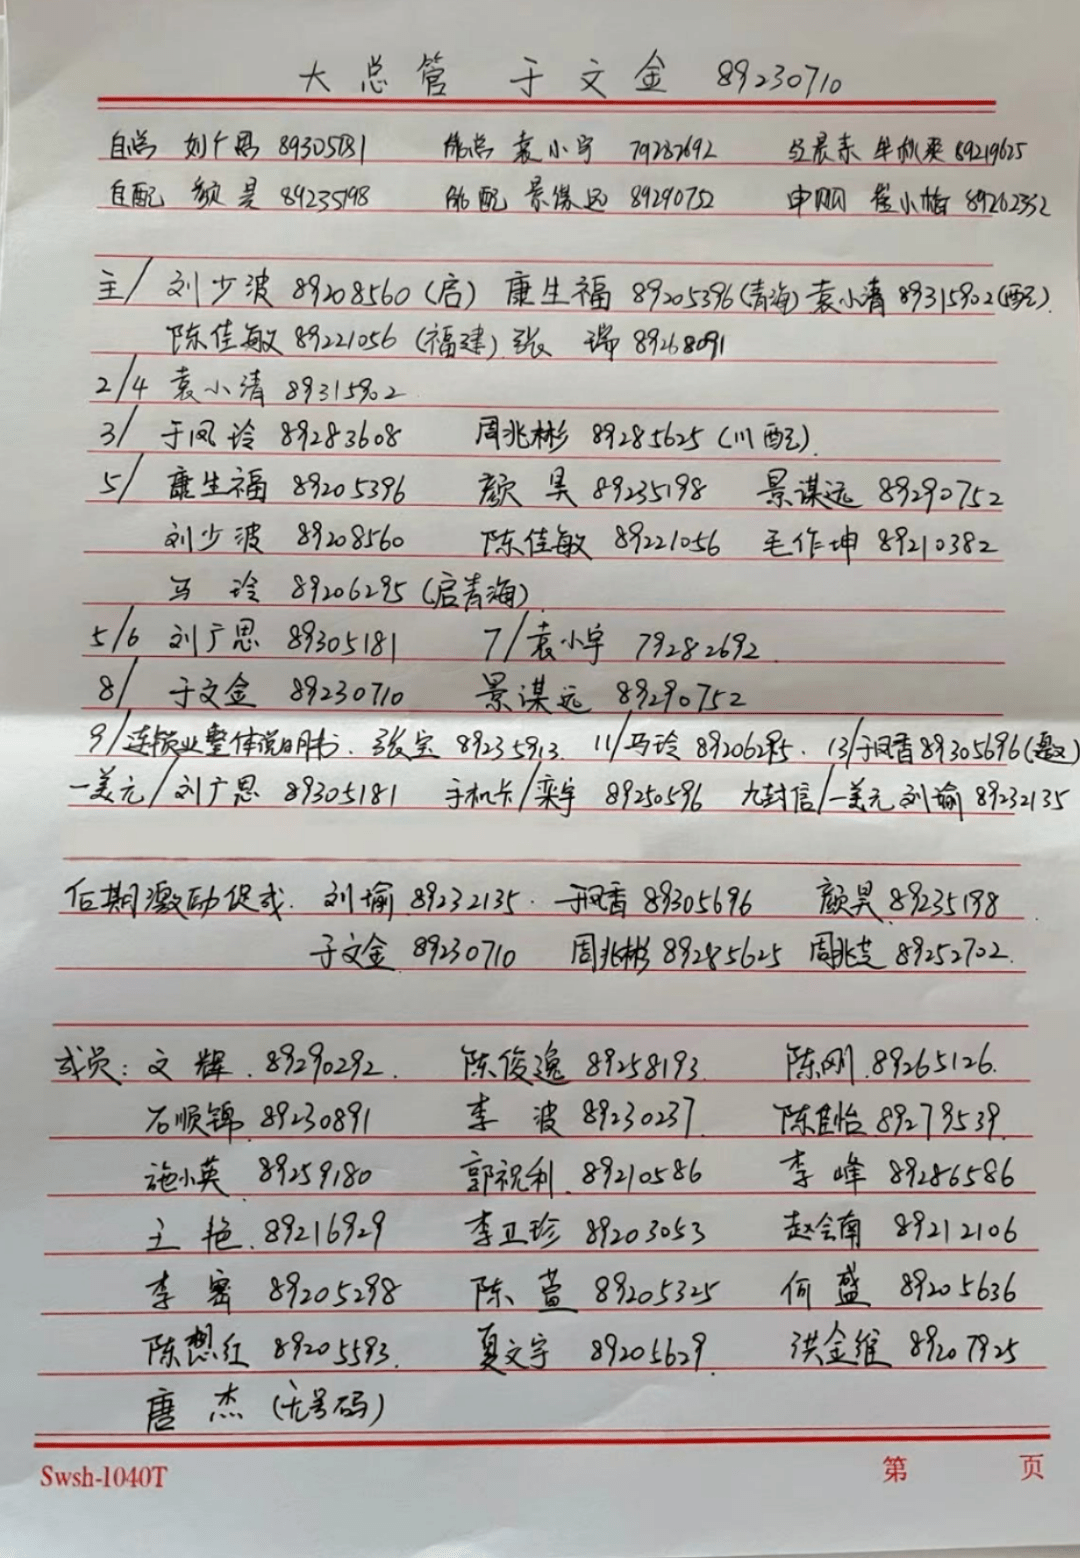 大总管 于文金 89230710
自总 刘广恩 89305181 能总 袁小宇 79282692 89219625
自配 颜昊 89235198 能配 景谋远 89290752 申购 崔小梅 89262332
主/ 刘少波 89208560(启) 康生福 89205396(青海) 袁小清 89315902(配)
陈佳敏 89221056 (福建) 张瑞 89268091
2/4 袁小清 89315902
3/ 于凤玲 89283608 周兆彬 89285625 (川配)
5/ 康生福 89205396 颜昊 89235198 景谋远 89290752
刘少波 89208560 陈佳敏 89221056 毛作坤 89210382
马玲 89206295 (启青海)
5/6 刘广恩 89305181 7/袁小宇 79282692
8/ 于文金 89230710 景谋远 89290752
9/连锁业整体说明书. 张宝 89235913. 11/马玲 89206295. 13/于凤香 89305696
一美元/刘广恩 89305181 手机卡/栾宇 89250596 九封信/一美元 刘瑜 89232135
后期激励促成. 刘瑜 89232135. 于凤香 89305696 颜昊 89235198
于文金 89230710 周兆彬 89285625 周兆芝 89252702.
成员: 文辉. 89290292. 陈俊逸 89258193. 陈刚 89265126.
石顺锦 89230891 李波 89230237. 陈佳怡 89279539.
施小英 89259180 郭祝利 89210586 李峰 89286586
王艳. 89216929 李卫珍 89203053 赵会南 89212106
李密 89205298 陈萱 89205325 何盛 89205636
陈想红 89205593. 夏文宇 89205629. 洪金维 89207925
唐杰 (无号码)
Swsh-1040T 第 页